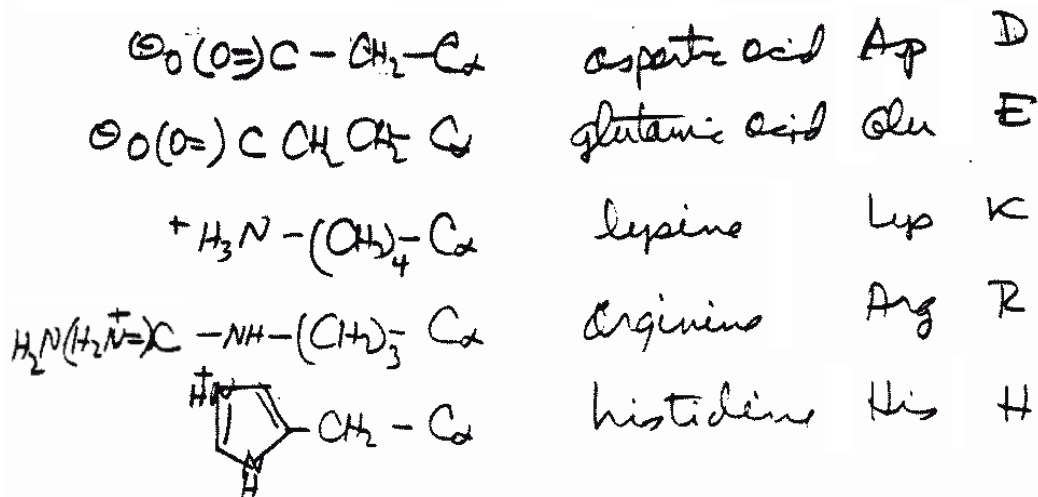 ⊖O(O=)C – CH₂–Cα aspartic acid Asp D
⊖O(O=) C CH₂ CH₂– Cα glutamic acid Glu E
⁺H₃N –(CH₂)₄– Cα lysine Lys K
H₂N(H₂N⁺=)C –NH–(CH₂)₃– Cα arginine Arg R
HN⁺ N H –CH₂ – Cα histidine His H